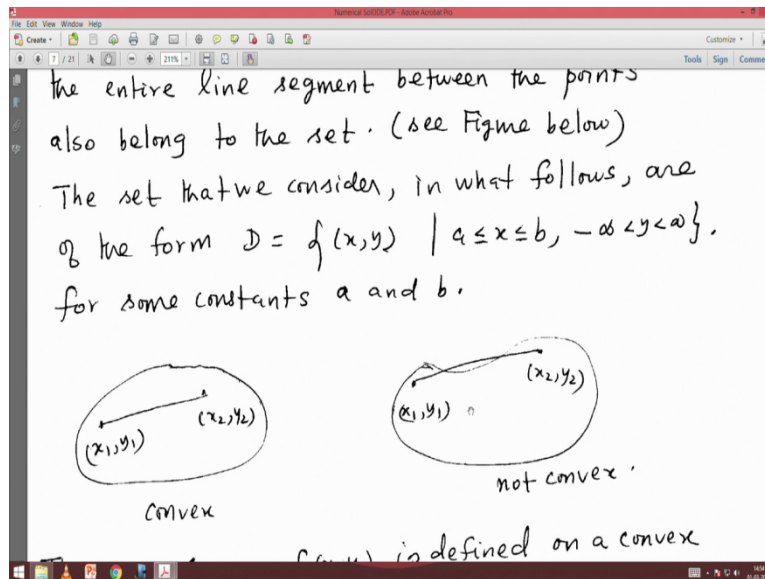 Numerical SolODE.PDF - Adobe Acrobat Pro
File Edit View Window Help
Create
Customize
7 / 21
211%
Tools Sign Comme
the entire line segment between the points
also belong to the set. (see Figure below)
The set that we consider, in what follows, are
of the form D = {(x,y) | a ≤ x ≤ b, -∞ < y < ∞}.
for some constants a and b.
(x₁,y₁) (x₂,y₂)
convex
(x₁,y₁) (x₂,y₂)
not convex.
is defined on a convex
14:54